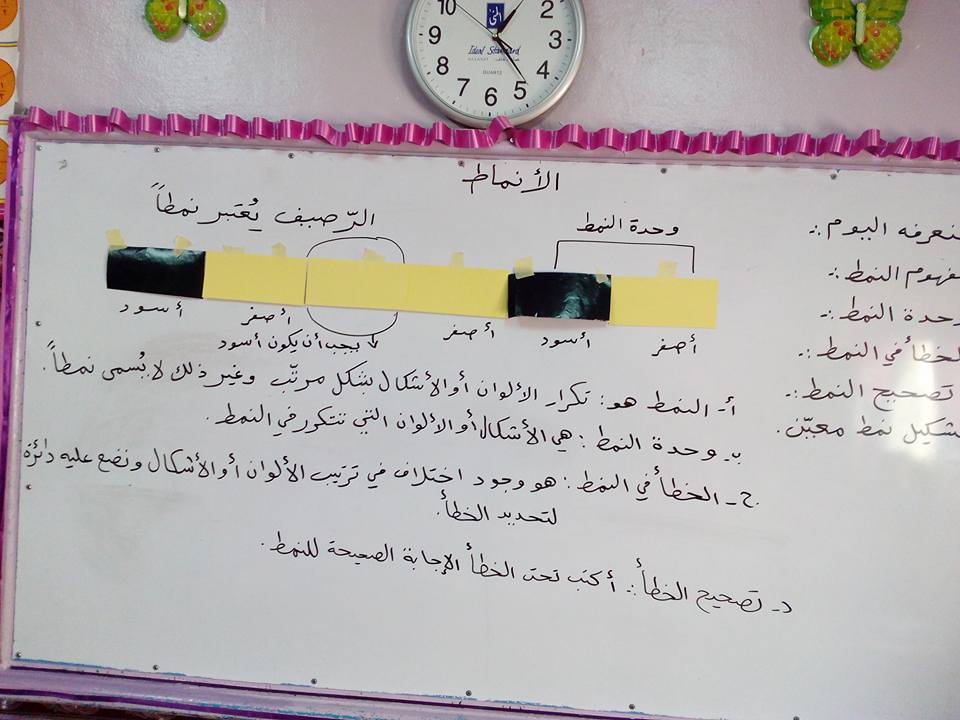 10
2
9
3
8
4
7
6
5
Ideal Standard
QUARTZ
الأنماط
الرّصيف يُعتبر نمطاً
وحدة النمط
أصفر
أسود
أصفر
أصفر
أسود
يجب أن يكون أسود
نعرفه اليوم :.
مفهوم النمط :.
وحدة النمط :.
الخطأ في النمط :.
تصحيح النمط :.
تشكيل نمط معيّن.
أ- النمط هو: تكرار الألوان أو الأشكال بشكل مرتّب وغير ذلك لا يُسمى نمطاً.
ب- وحدة النمط: هي الأشكال أو الألوان التي تتكرر في النمط.
ج- الخطأ في النمط: هو وجود اختلاف في ترتيب الألوان أو الأشكال ونضع عليه دائرة
لتحديد الخطأ.
د- تصحيح الخطأ :. أكتب تحت الخطأ الإجابة الصحيحة للنمط.